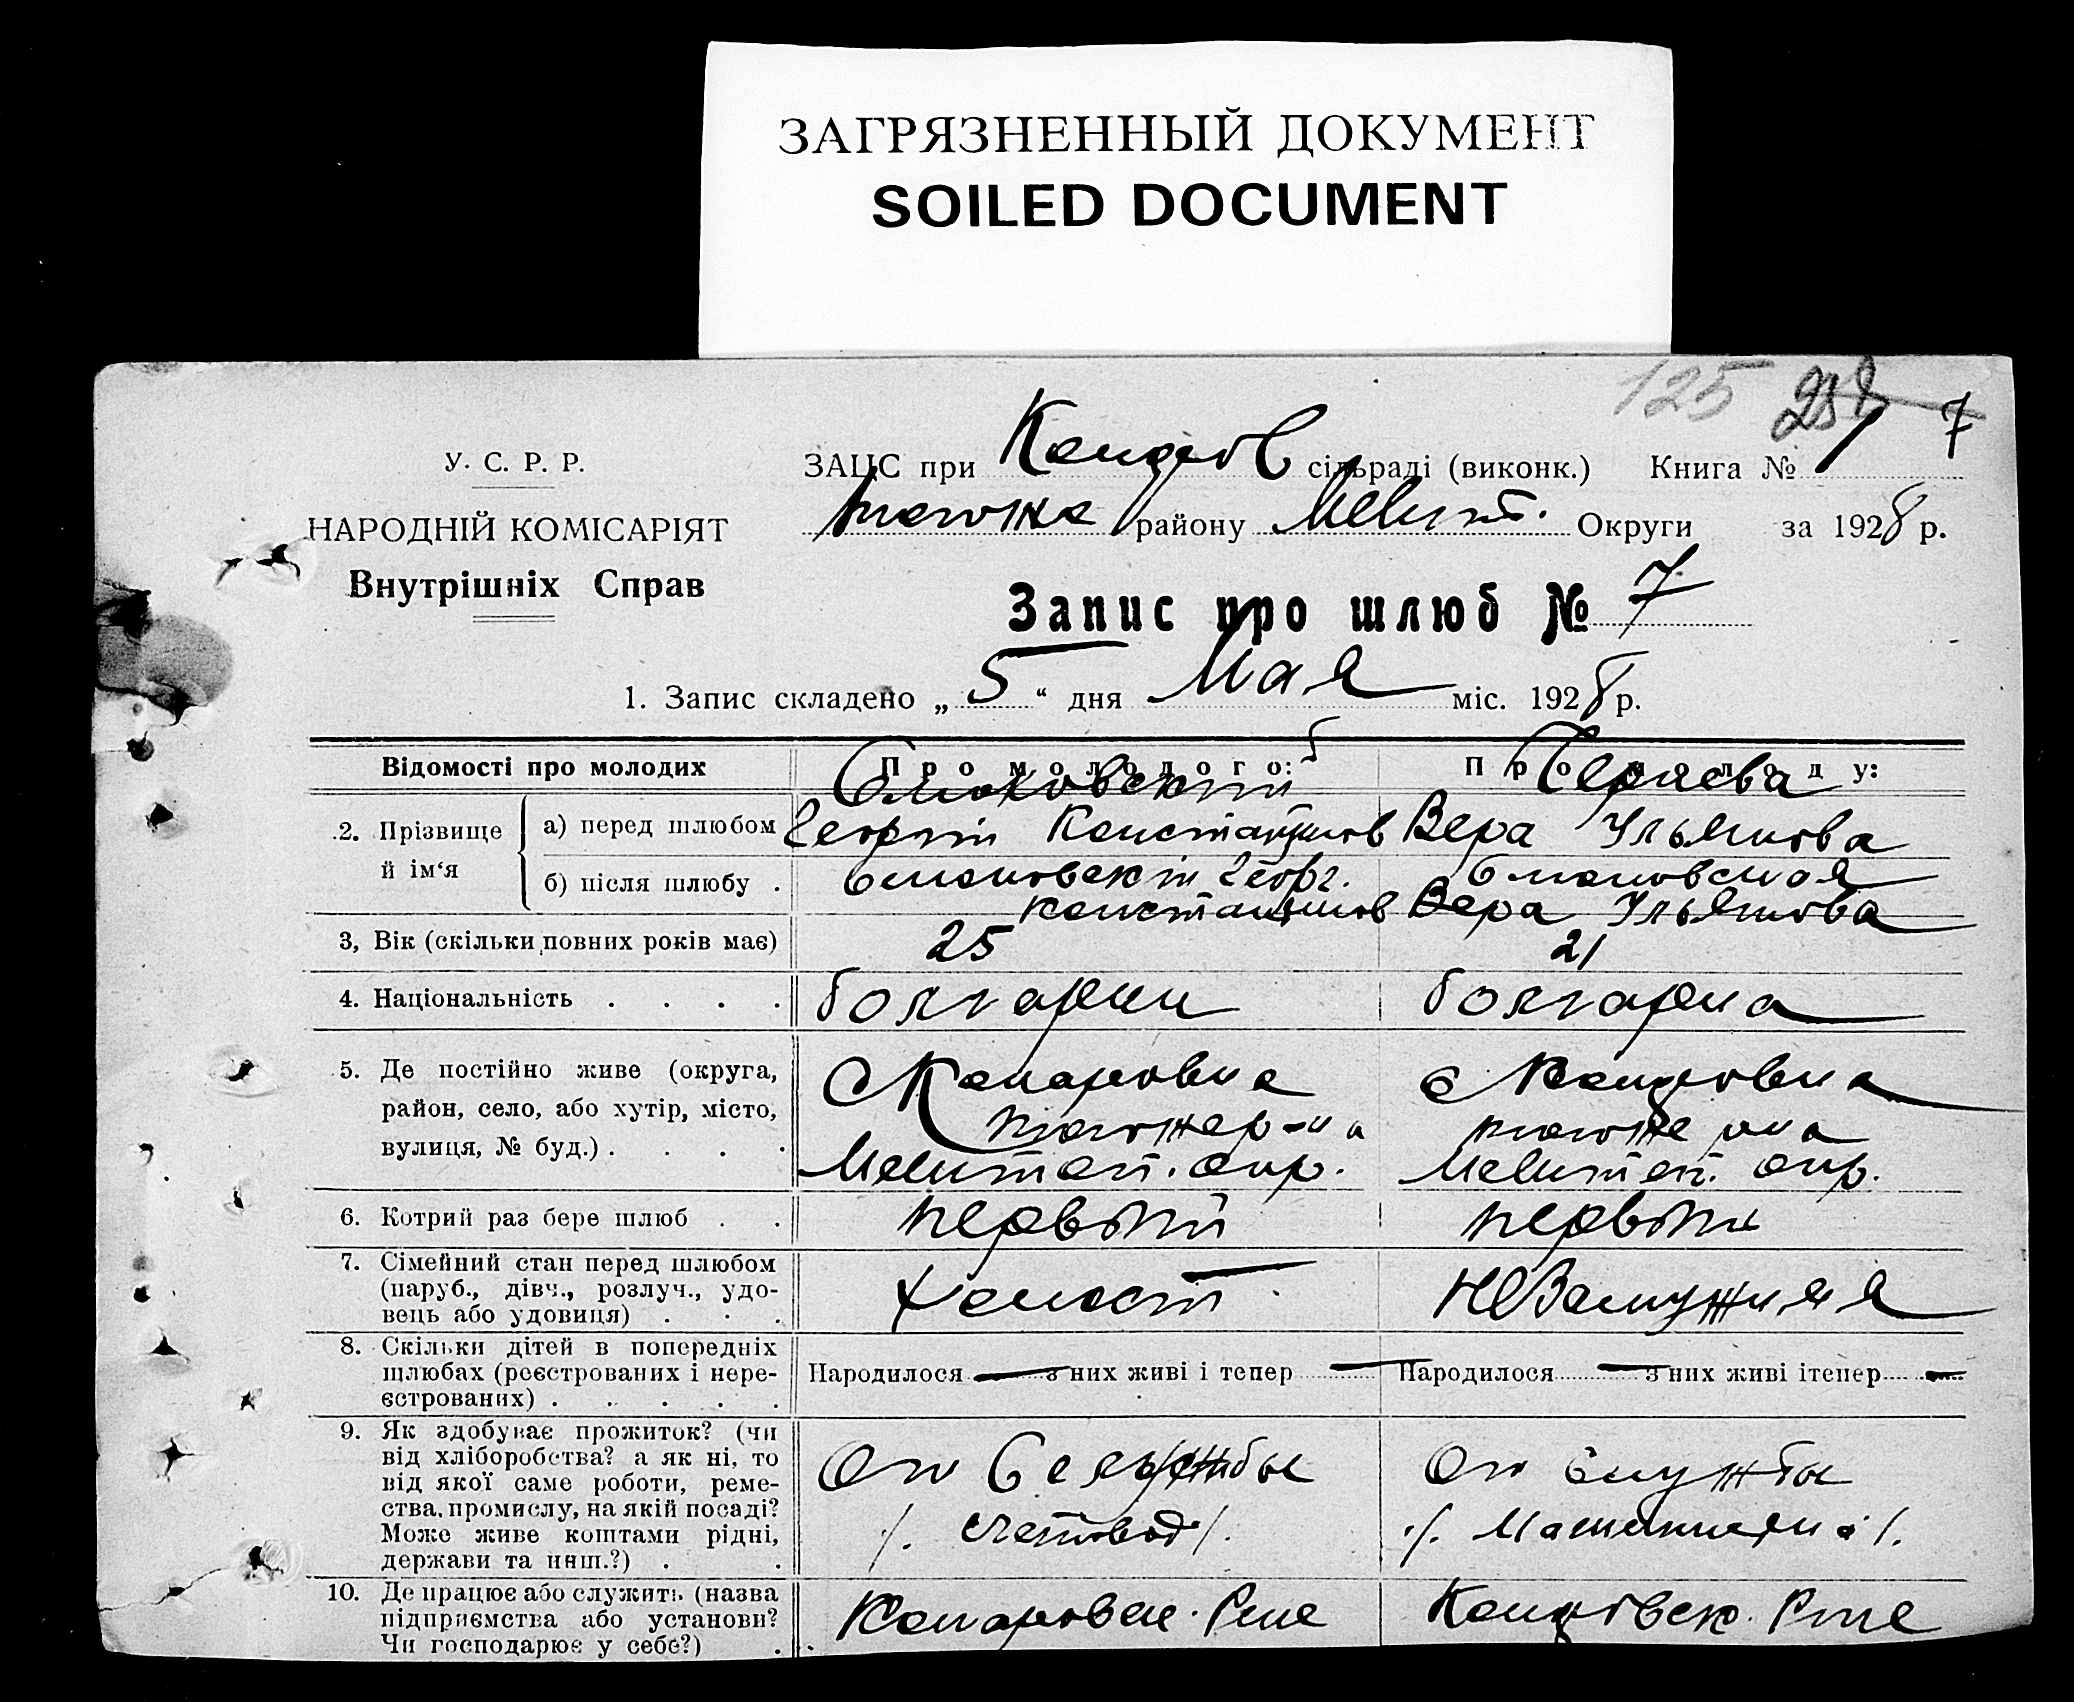 ЗАГРЯЗНЕННЫЙ ДОКУМЕНТ
SOILED DOCUMENT
125
7
У. С. Р. Р.
НАРОДНІЙ КОМІСАРІЯТ
Внутрішніх Справ
ЗАЦС при сільраді (виконк.) Книга № 1
району Мелит. Округи за 1928 р.
Запис про шлюб № 7
1. Запис складено „ 5 “ дня Мая міс. 1928 р.
Відомості про молодих
Про молодого:
Про молоду:
2. Прізвище й ім‘я
а) перед шлюбом
Георгій Константинов
Вера Ульянова
б) після шлюбу .
Георг.
Константинов
Вера Ульянова
3, Вік (скільки повних років має)
25
21
4. Національність . . . .
болгарин
болгарка
5. Де постійно живе (округа,
район, село, або хутір, місто,
вулиця, № буд.) . . . .
Мелитоп. окр.
Мелитоп. окр.
6. Котрий раз бере шлюб . .
первый
первый
7. Сімейний стан перед шлюбом
(паруб., дівч., розлуч., удо-
вець або удовиця) . . .
холост
незамужняя
8. Скільки дітей в попередніх
шлюбах (реєстрованих і нере-
єстрованих) . . . . .
Народилося — з них живі і тепер —
Народилося — з них живі ітепер —
9. Як здобуває прожиток? (чи
від хліборобства? а як ні, то
від якої саме роботи, реме-
ства, промислу, на якій посаді?
Може живе коштами рідні,
держави та инш.?) . .
От службы
/. счетовод /.
От службы
./. Машинистка /.
10. Де працює або служить (назва
підприємства або установи?
Чи господарює у себе?) .